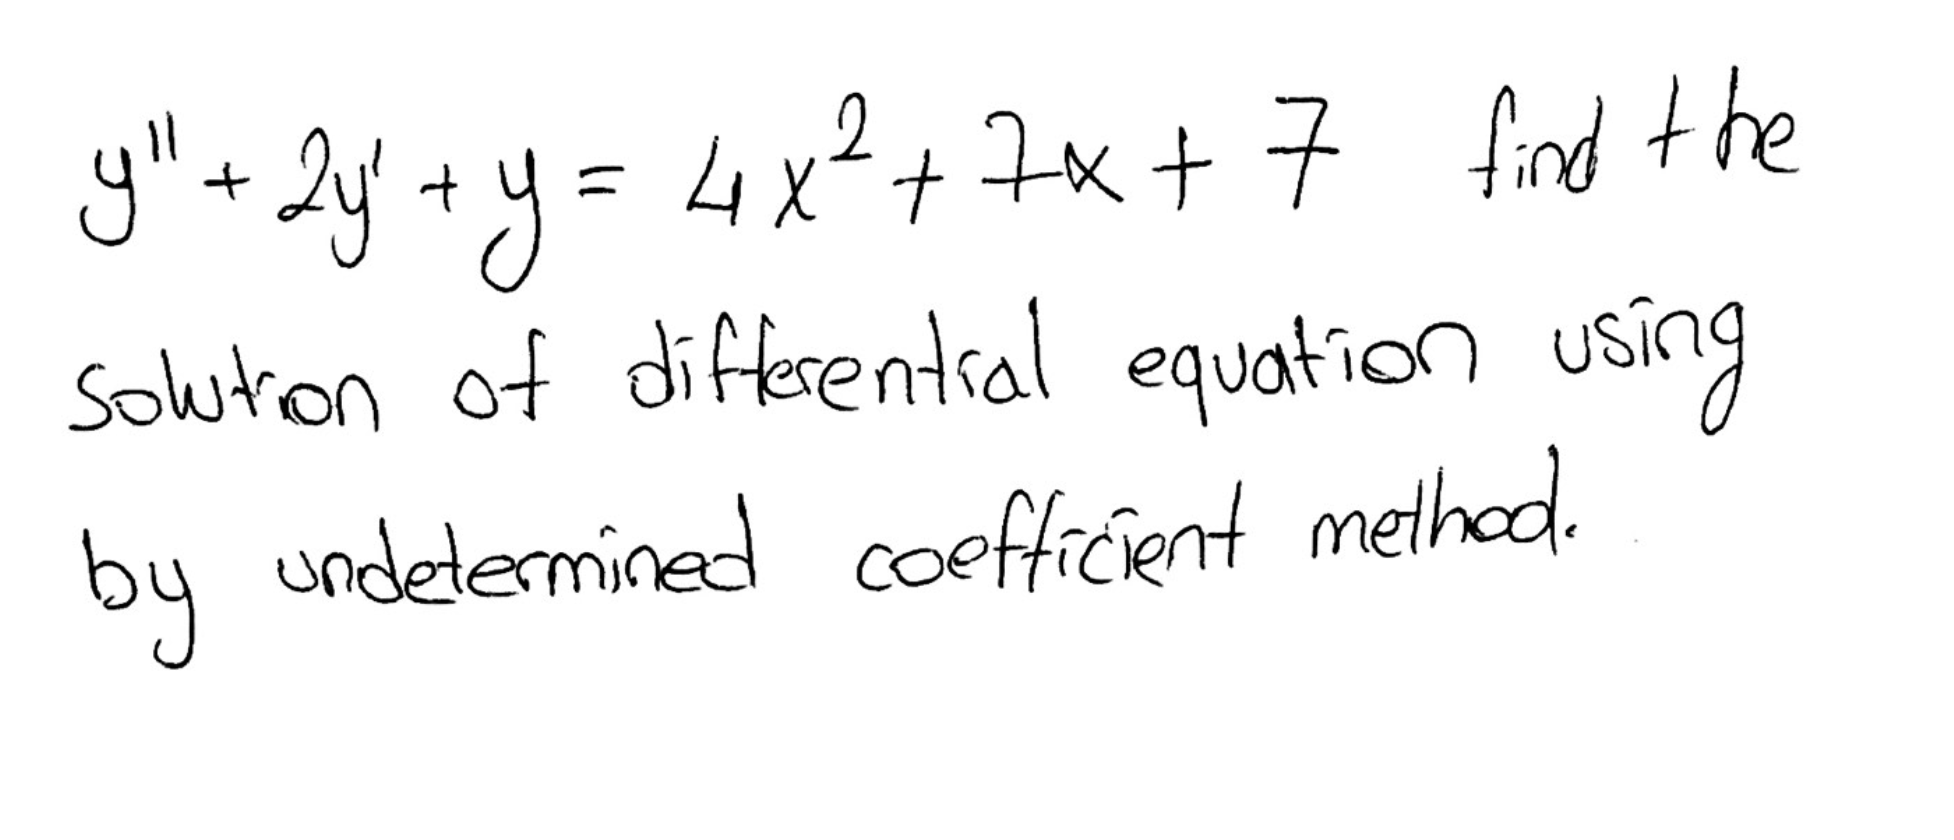 y" + 2y' + y = 4x² + 7x + 7 find the
solution of differential equation using
by undetermined coefficient method.